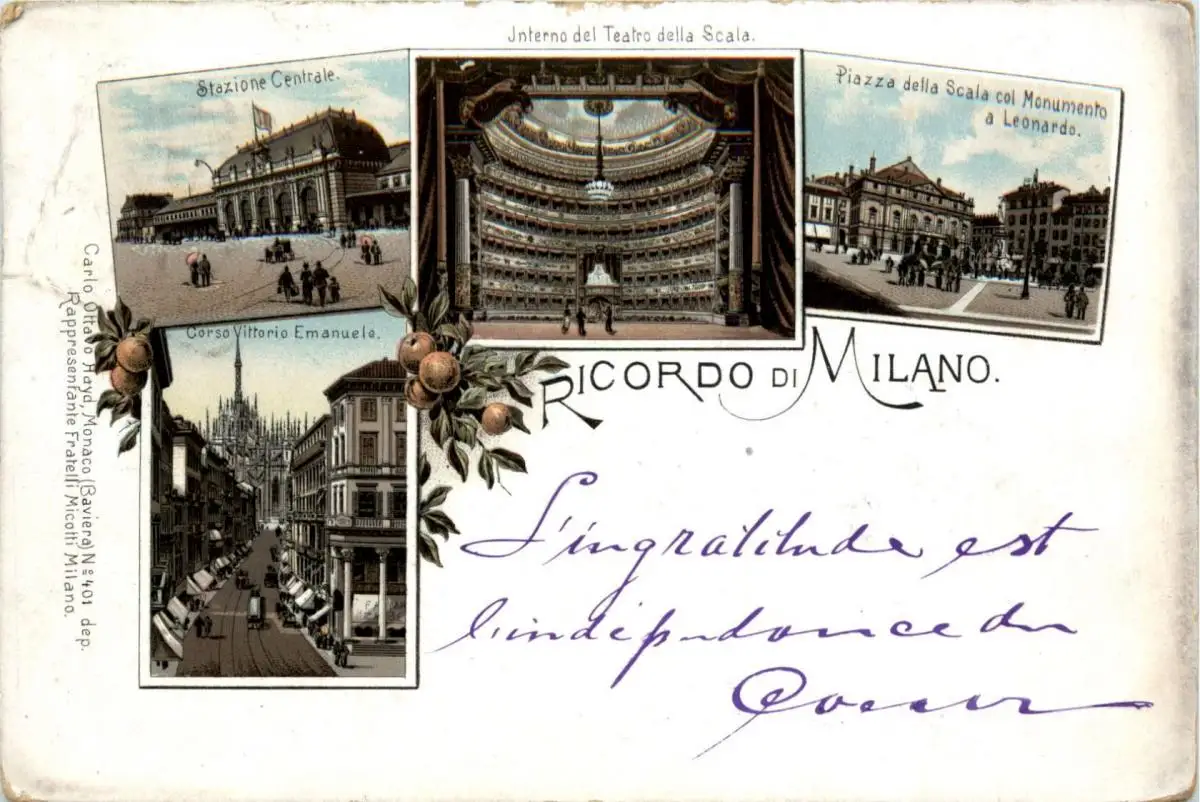 Jnterno del Teatro della Scala.
Stazione Centrale.
Piazza della Scala col Monumento
a Leonardo.
Corso Vittorio Emanuele.
RICORDO DI MILANO.
L'ingratitude est
l'indépendance du
Coeur
Carlo Ottavo Hayd, Monaco (Baviera) No 401 dep.
Rappresentante Fratelli Micotti Milano.